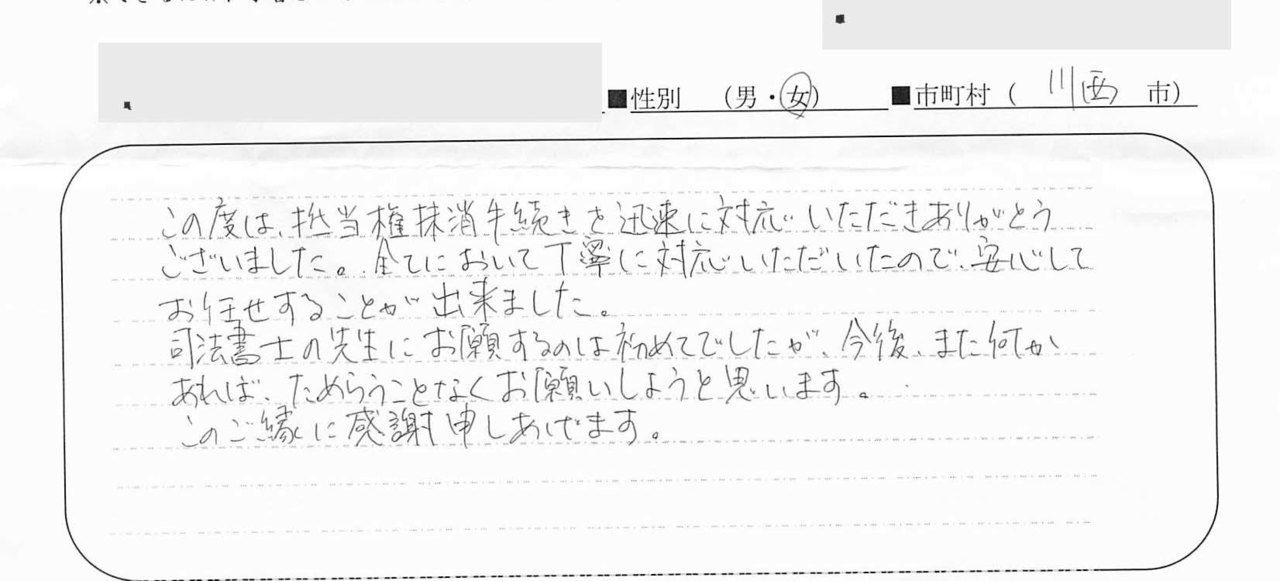 ■性別 （男・女） ■市町村（ 川西 市）
この度は、抵当権抹消手続きを迅速に対応いただきありがとう
ございました。全てにおいて丁寧に対応いただいたので、安心して
お任せすることが出来ました。
司法書士の先生にお願するのは初めてでしたが、今後、また何か
あれば、ためらうことなくお願いしようと思います。
このご縁に感謝申しあげます。